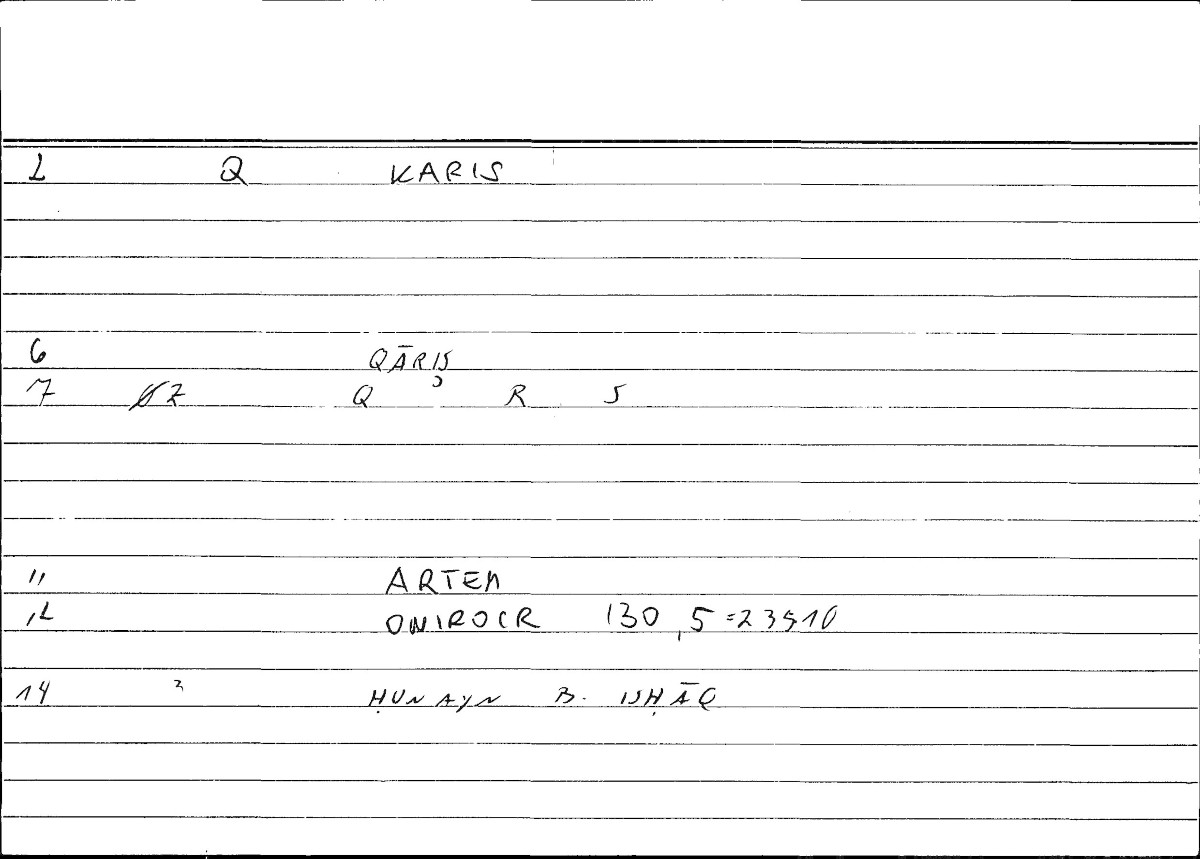 2 Q KARIS
6 QĀRIṢ
7 ø7 Q R S
11 ARTEM
12 ONIROCR 130,5=235,10
14 2 ḤUNAYN B. ISḤĀQ